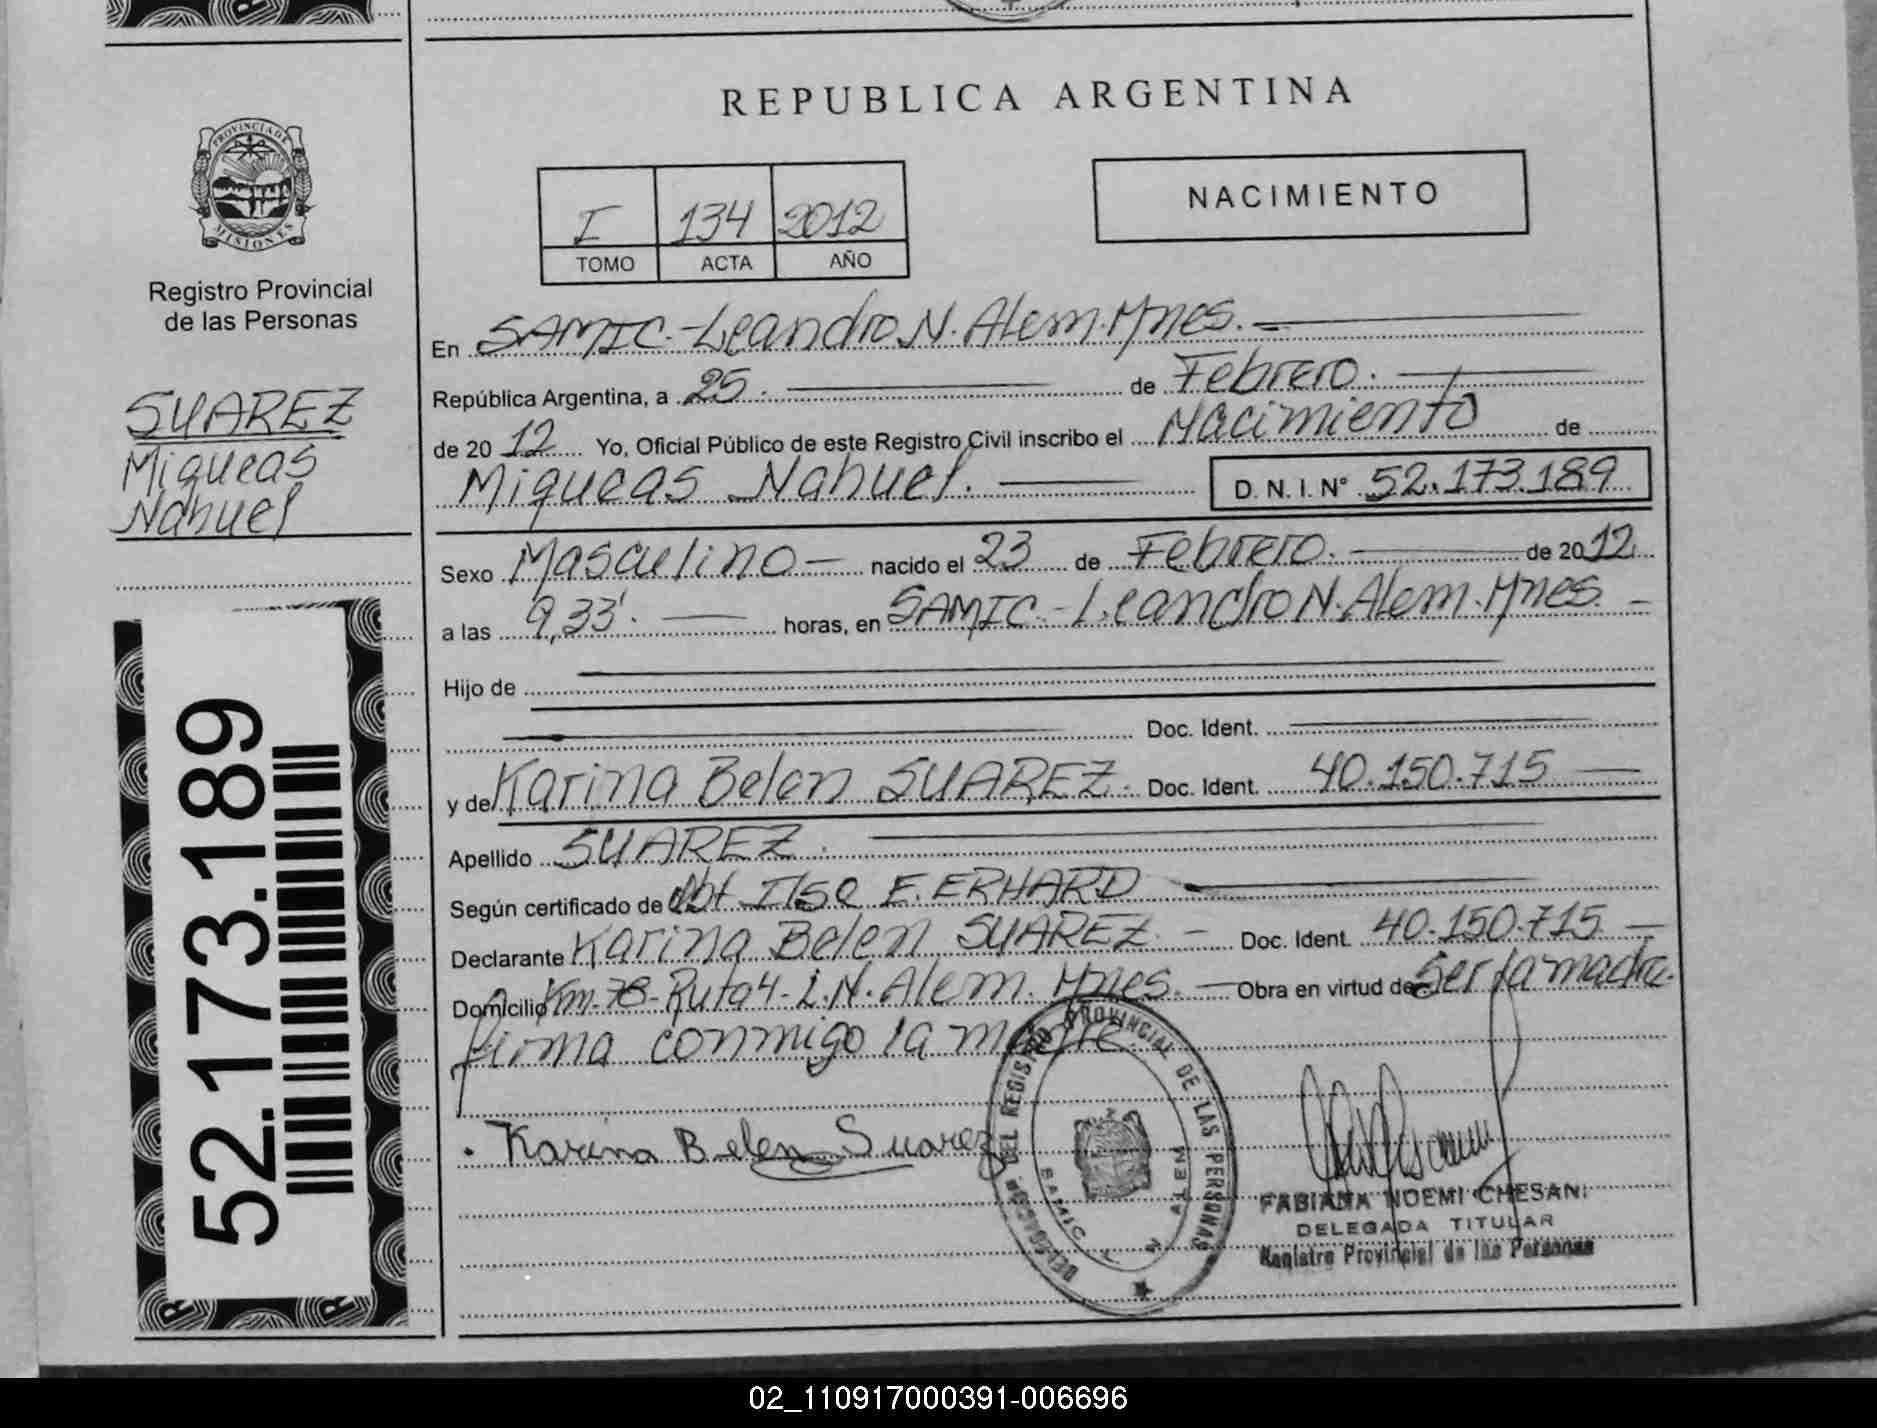 REPUBLICA ARGENTINA
PROVINCIA DE
MISIONES
Registro Provincial
de las Personas
I 134 2012
TOMO ACTA AÑO
NACIMIENTO
SUAREZ
Miqueas
Nahuel
52.173.189
En SAMIC.-Leandro N. Alem.Mnes.
República Argentina, a 25. de Febrero.
de 2012 Yo, Oficial Público de este Registro Civil inscribo el Nacimiento de
Miqueas Nahuel. D. N. I. N° 52.173.189
Sexo Masculino nacido el 23 de Febrero. de 2012
a las 9,33'. horas, en SAMIC.-Leandro N. Alem.Mnes.
Hijo de
Doc. Ident.
y de Karina Belen SUAREZ. Doc. Ident. 40.150.715
Apellido SUAREZ.
Según certificado de Obt Ilse E. ERHARD
Declarante Karina Belen SUAREZ. Doc. Ident. 40.150.715
Domicilio Km-78-Ruta 4-L.N. Alem. Mnes. Obra en virtud de Ser la madre.
firma conmigo la madre.
Karina Belen Suarez
DELEGACION DEL REGISTRO PROVINCIAL DE LAS PERSONAS
SAMIC L N ALEM
FABIANA NOEMI CHESANI
DELEGADA TITULAR
Registro Provincial de las Personas
02_110917000391-006696